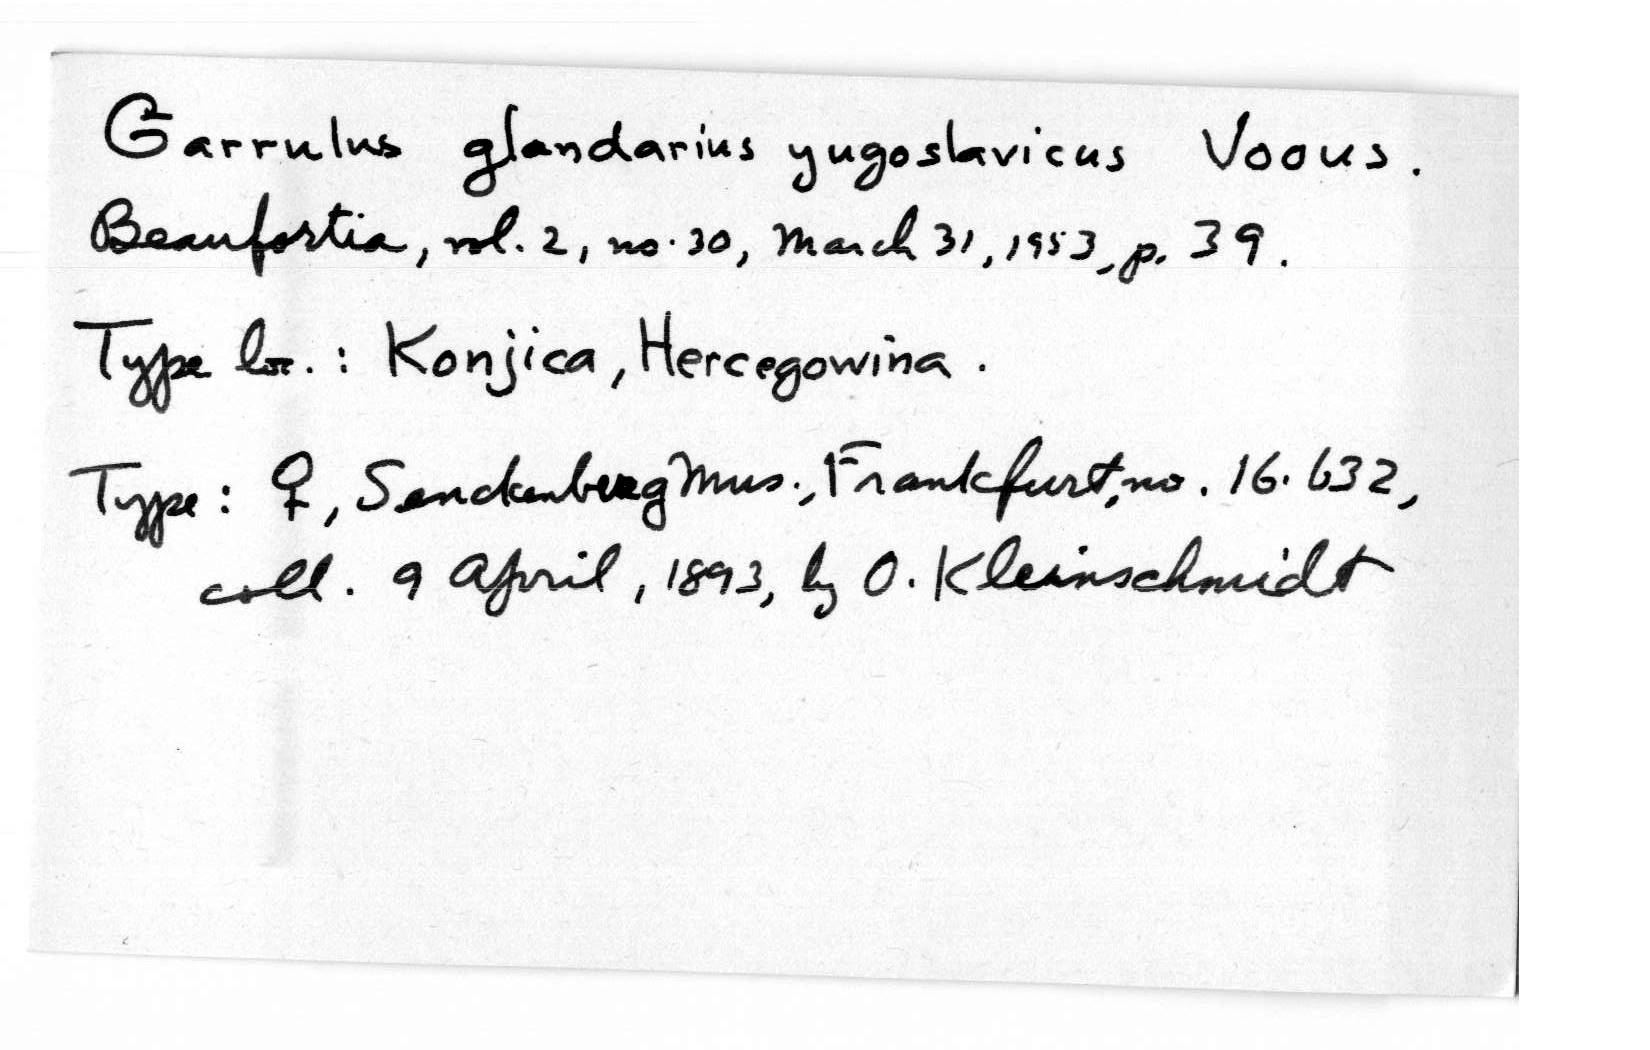 Garrulus glandarius yugoslavicus Voous.
Beaufortia, vol. 2, no. 30, March 31, 1953, p. 39.
Type loc.: Konjica, Hercegowina.
Type: ♀, Senckenberg Mus., Frankfurt, no. 16.632,
coll. 9 April, 1893, by O. Kleinschmidt